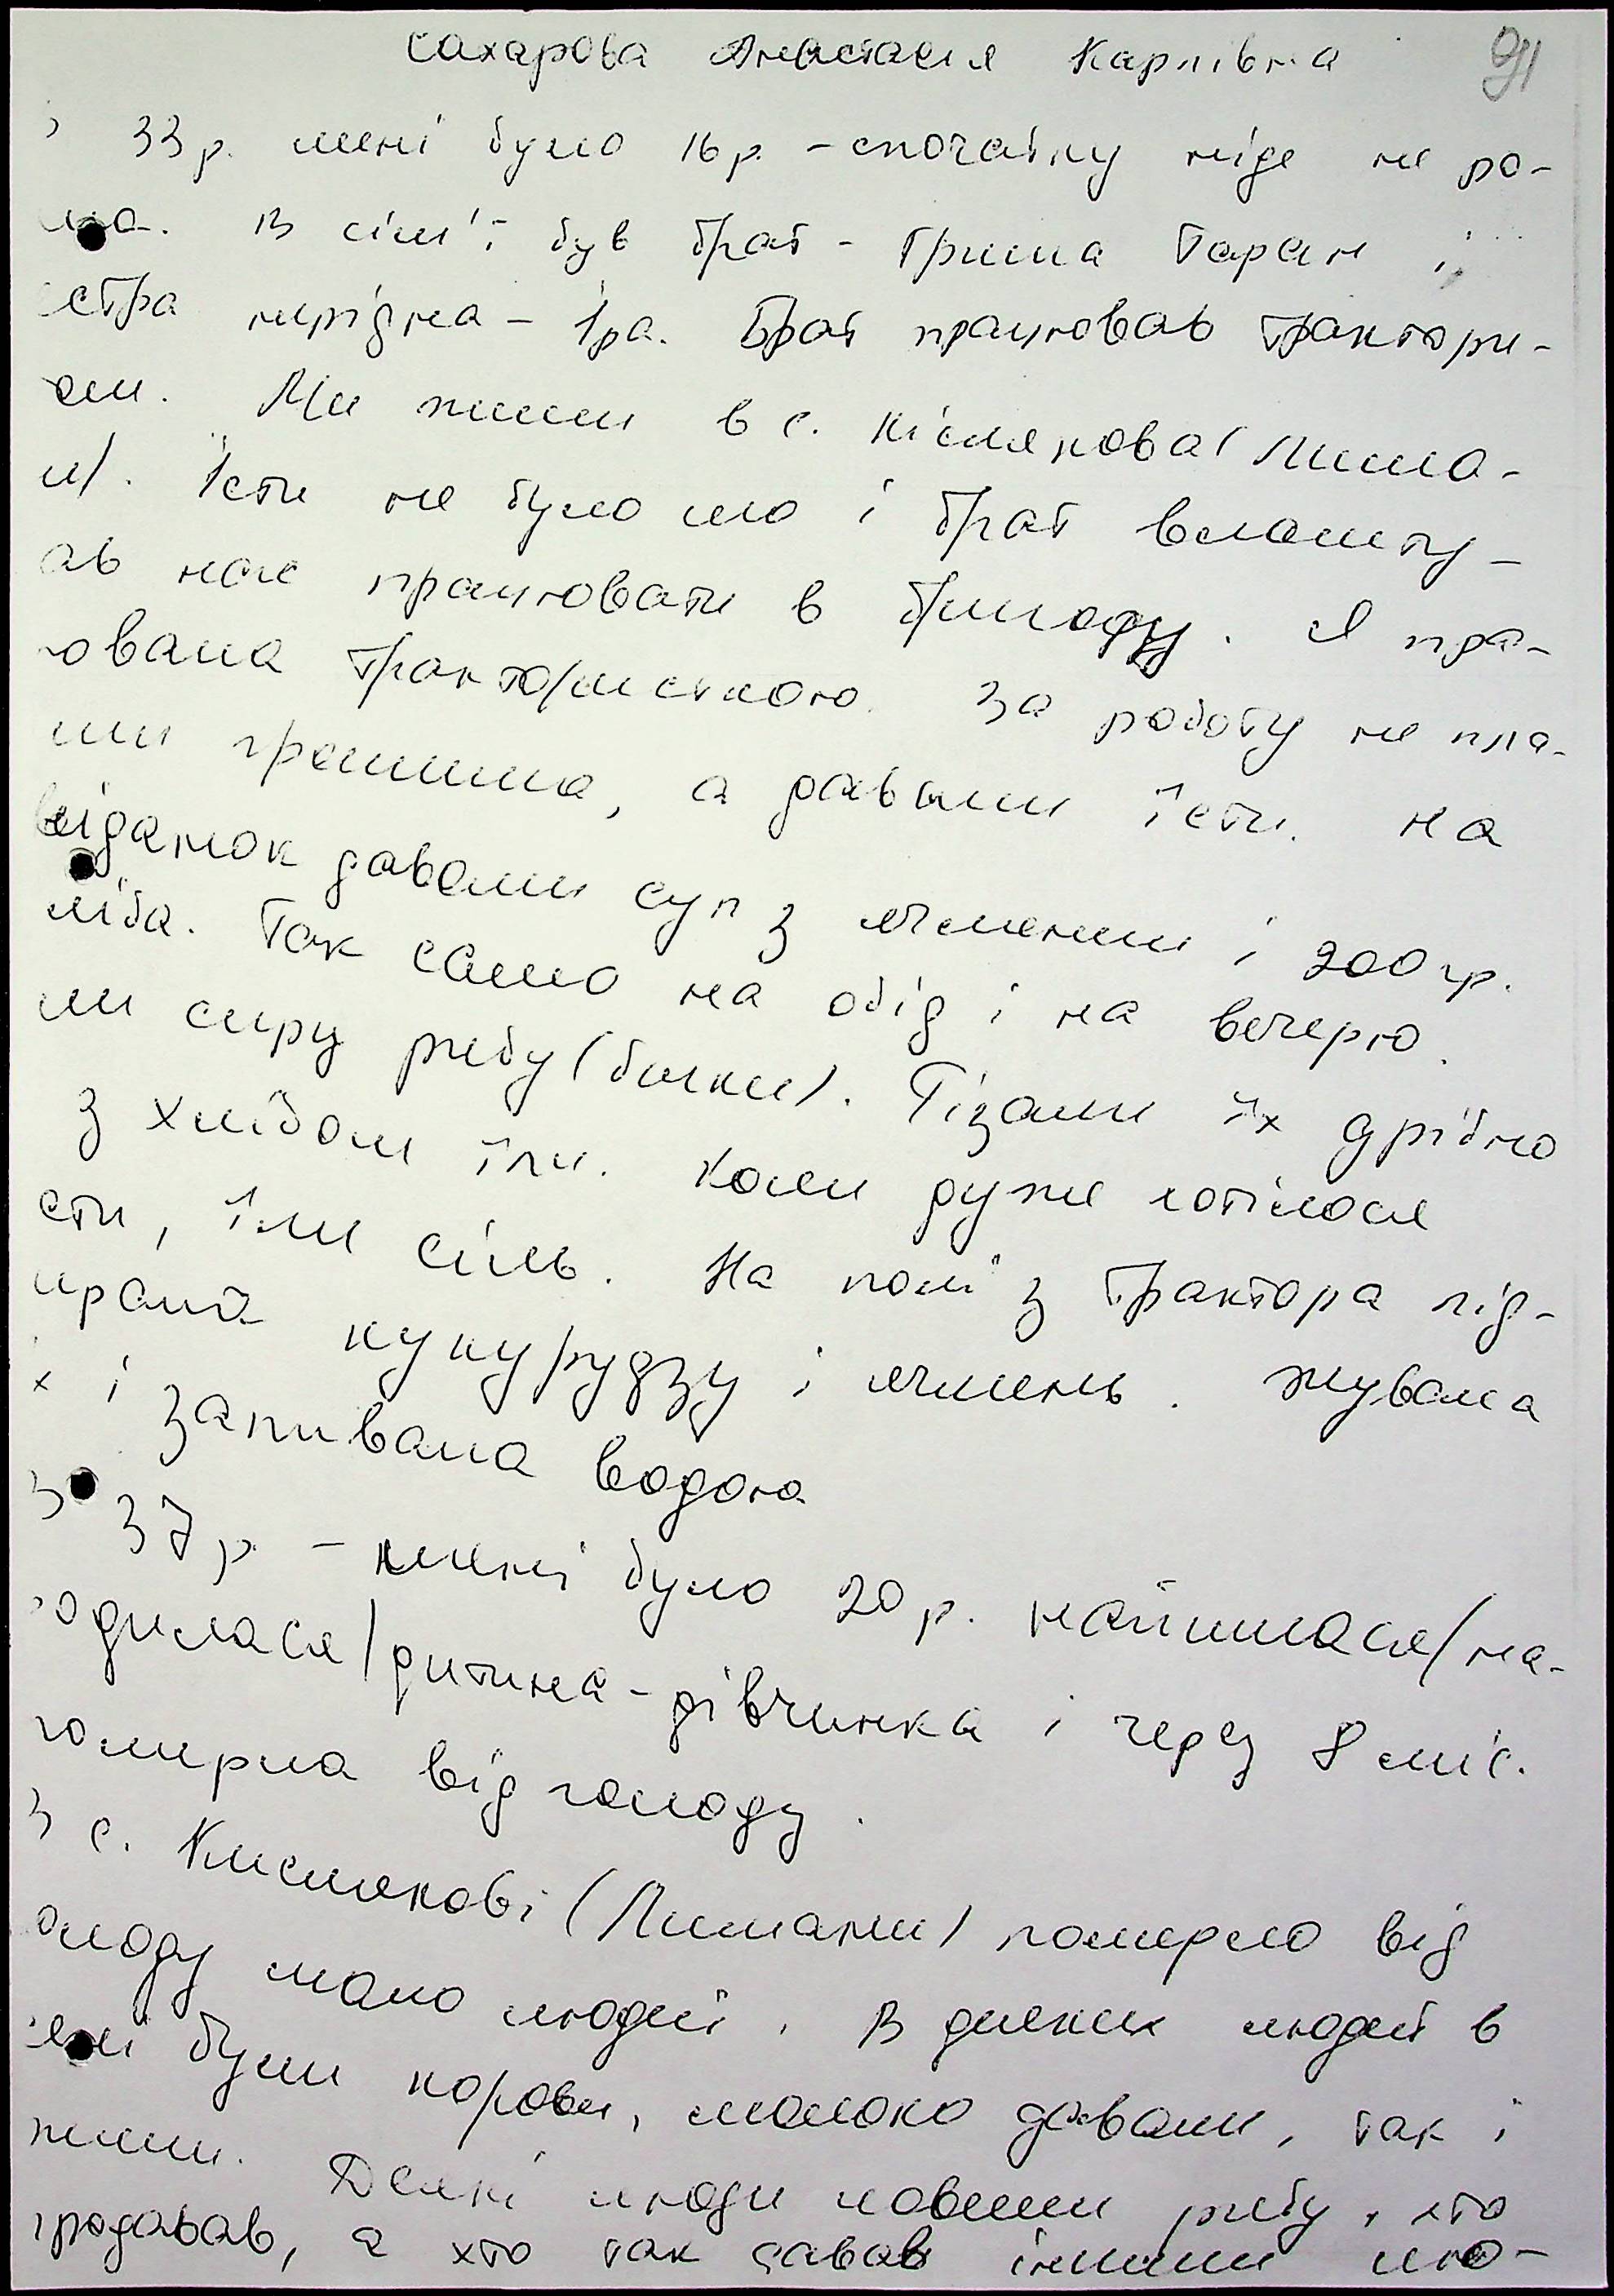 Сахарова Анастасія Карлівна 91
33р. мені було 16р. - спочатку ніде не ро-
В сім'ї був брат - Гриша Таран і
стра нерідна - Іра. Брат працював трактори-
ом. Ми жили в с. Кислякова (Лима-
и). Їсти не було що і брат влашту-
ав нас працювати в бригаду. Я пра-
ювала трактористкою. За роботу не пла-
или грошима, а давали їсти. На
ніданок давали суп з ячменем і 200 гр.
ліба. Так само на обід і на вечерю.
ли сиру рибу (бички). Різали їх дрібно
з хлібом їли. Коли дуже хотілося
сти, їли сіль. На полі з трактора під-
ирала кукурудзу і ячмінь. Жувала
х і запивала водою
37р - мені було 20р. найшлася (на-
одилася) дитина - дівчинка і через 8 міс.
омерла від голоду.
с. Кислякові (Лимани) померло від
олоду мало людей. В деяких людей в
елі були корови, молоко давали, так і
жили. Деякі люди ловили рибу, хто
продавав, а хто так давав іншим лю-